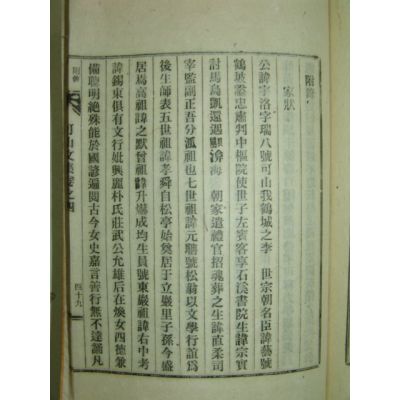 附錄
家狀
公諱洛字瑞八號可山我鶴城之李 世宗朝名臣諱藝號
鶴坡諡忠肅判中樞院使世子左賓客享石溪書院生諱宗實
討馬島凱還遇颶渰海 朝家遣禮官招魂葬之生諱直柔司
宰監副正吾分派祖也七世祖諱元聃號松翁以文學行誼爲
後生師表五世祖諱孝舜自松亭始奠居于立巖里子孫今盛
居焉高祖諱之默曾祖諱升爀成均生員號東嚴祖諱右中考
諱錫東俱有文行妣興麗朴氏莊武公允雄后在煥女四德兼
備聰明絶殊能於國諺遍閱古今女史嘉言善行無不達誦凡
附錄
可山文集卷之四
四十九